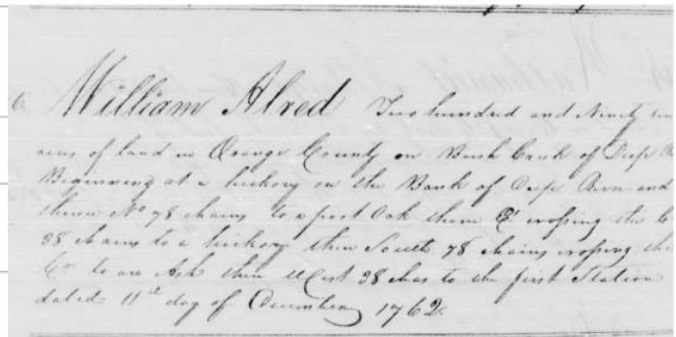 William Alred Two hundred and Ninety
acres of land in Orange County on Bush Creek of Deep R
Beginning at a hickory on the Bank of Deep River and
thence No 78 chains to a post Oak thence Et crossing the C
38 chains to a hickory then South 78 chains crossing the
Cr to an Ash then West 38 chas to the first Station
dated 11th day of December 1762.